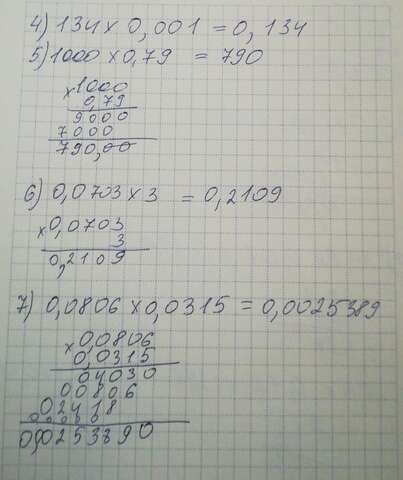 4) 134 × 0,001 = 0,134
5) 1000 × 0,79 = 790
× 1000
0,79
9000
7000
790,00
6) 0,0703 × 3 = 0,2109
× 0,0703
3
0,2109
7) 0,0806 × 0,0315 = 0,0025389
× 0,0806
0,0315
04030
00806
02418
0,0253890